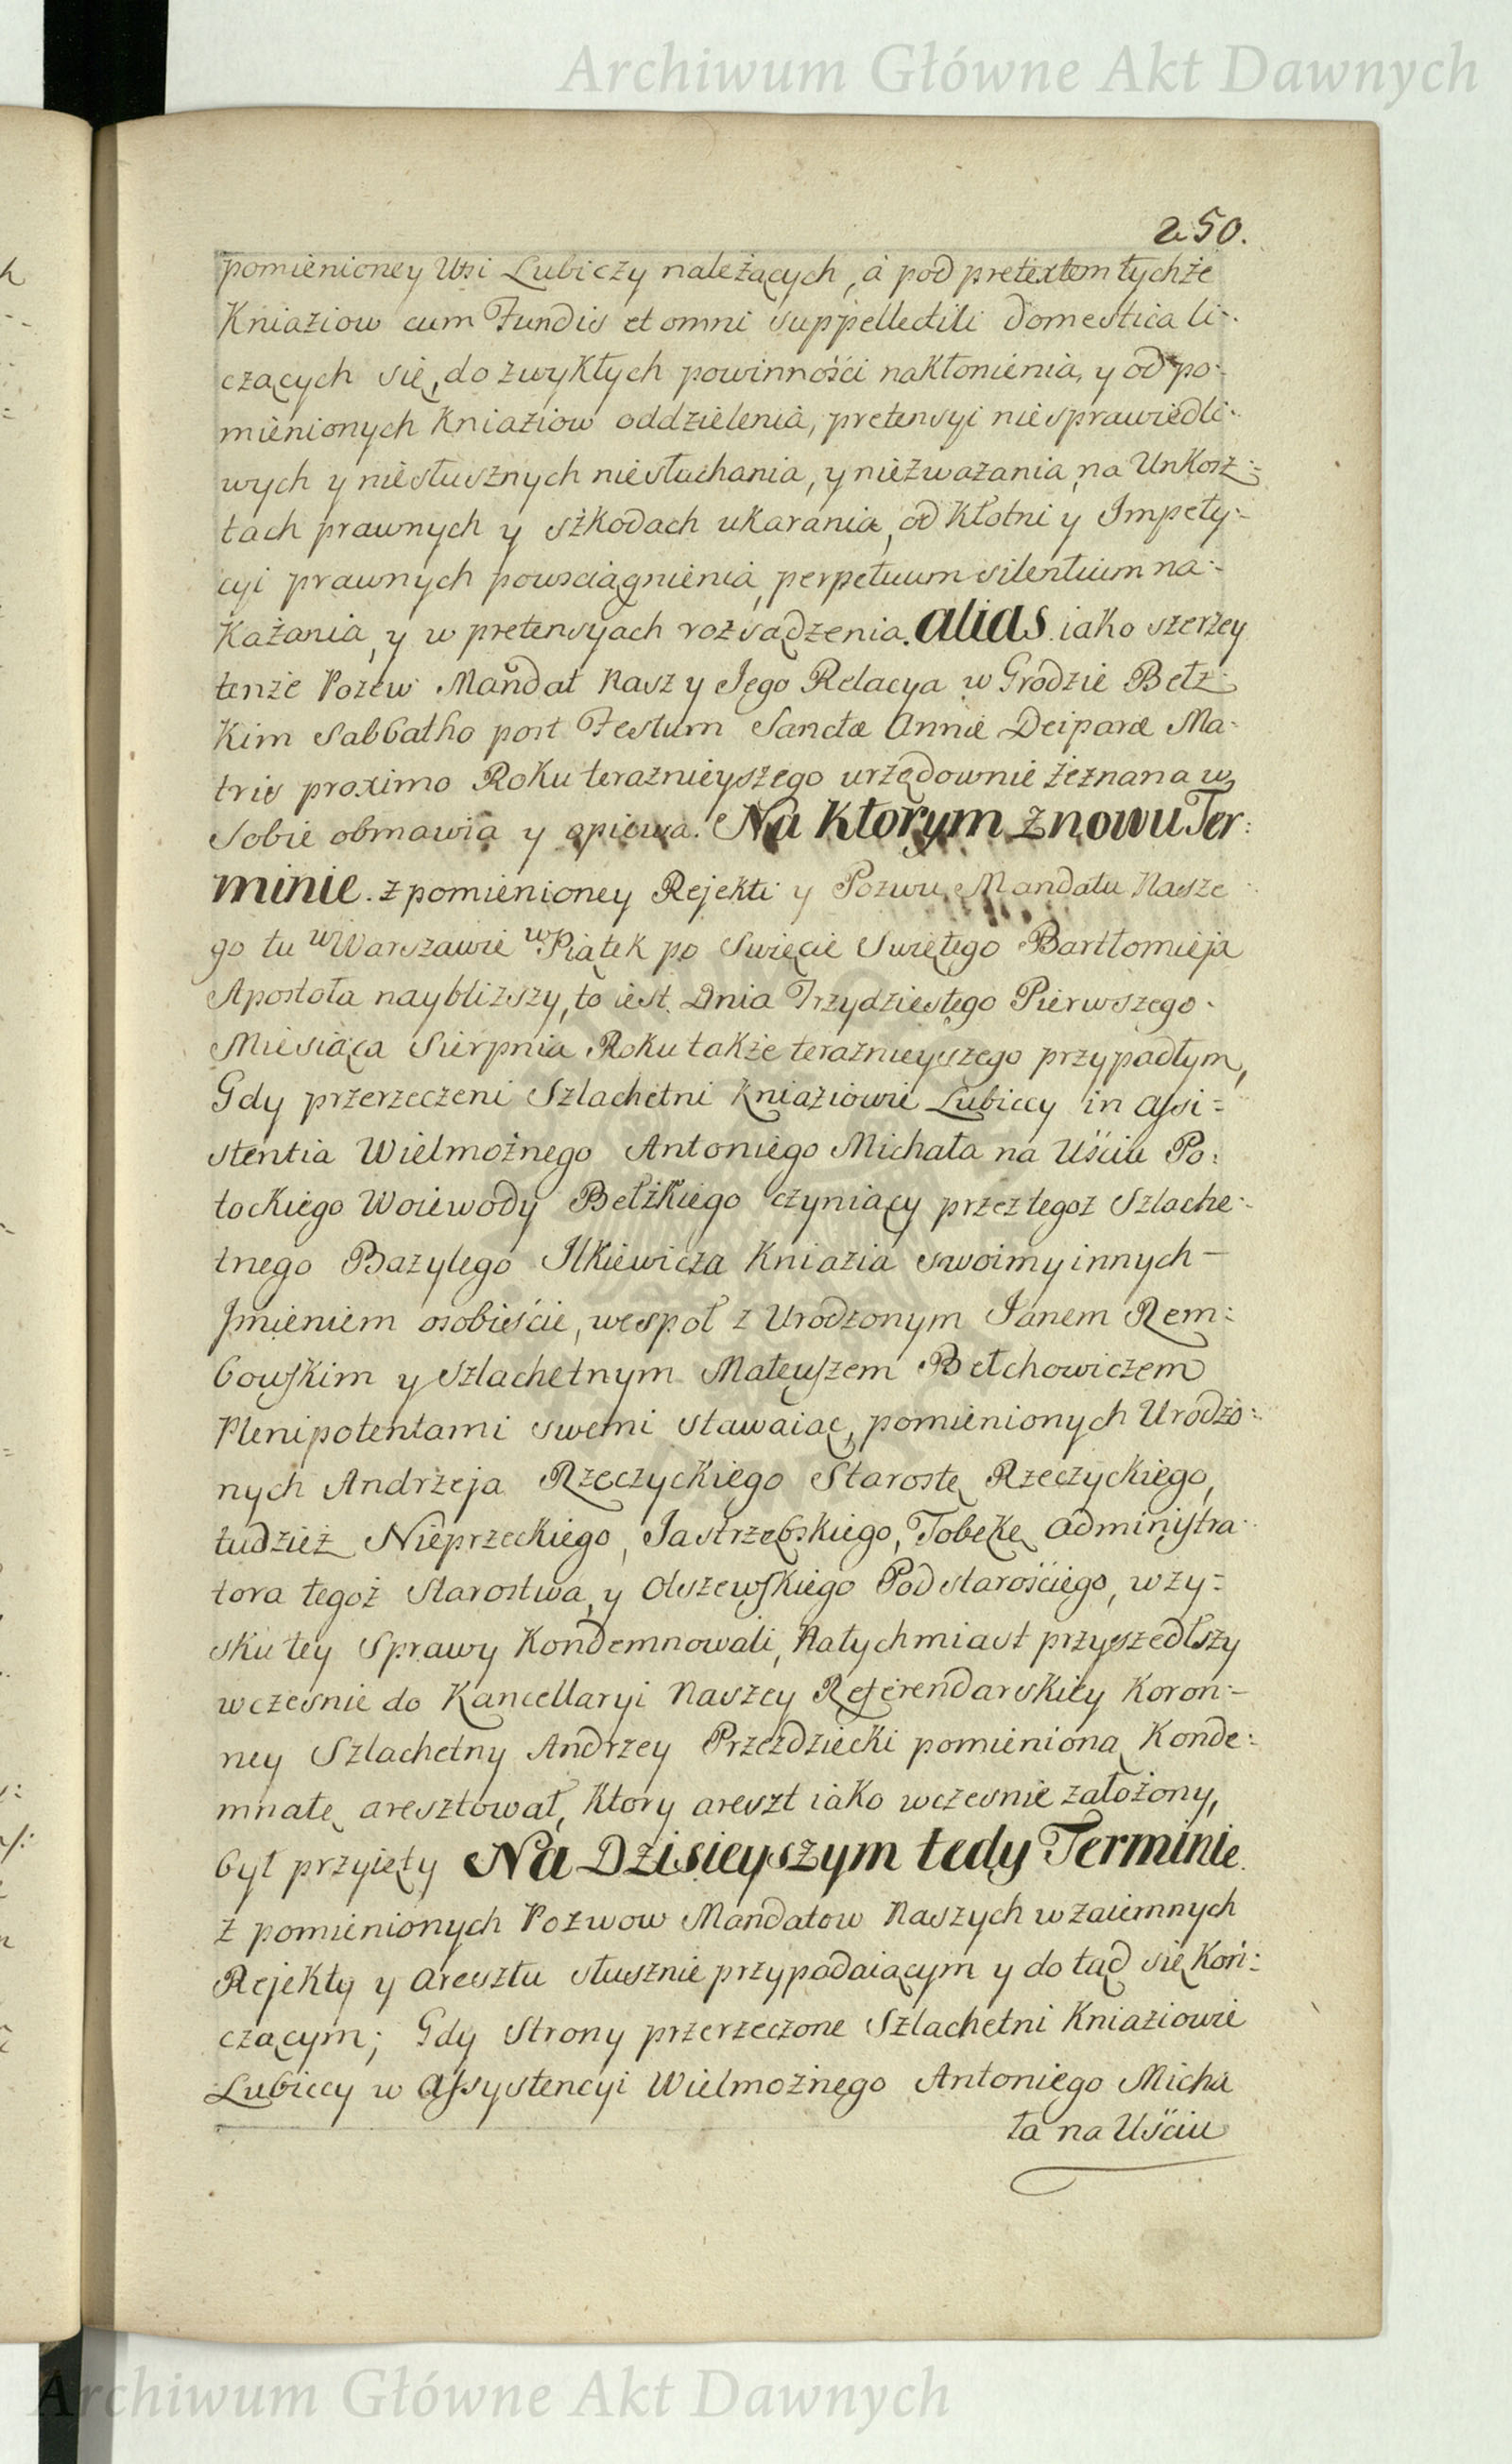 Archiwum Główne Akt Dawnych
250.
pomienioney Wsi Lubiczy należących, à pod pretextem tychże
Kniaziow cum Fundis et omni suppellectili domestica li-
czących się, do zwykłych powinności nakłonienia, y od po-
mienionych Kniaziow oddzielenia, pretensyi niesprawiedli-
wych y niesłusznych niesłuchania, y nieżważania, na Unkosz-
tach prawnych y szkodach ukarania, od Kłotni y Impety-
cyi prawnych powsciągnienia, perpetuum silentium na-
Każania, y w pretensyach rozsądzenia. alias iako szerzey
tenże Pozew Mandat Nasz y Jego Relacya w Grodzie Bełz-
Kim Sabbatho post Festum Sanctæ Annæ Deiparæ Ma-
tris proximo Roku teraznieyszego urzędownie żeznana w
Sobie obmawia y opiewa. Na Ktorym znowu Ter:
minie. z pomienioney Rejekti y Pozwu Mandatu Nasze
go tu w Warszawie w Piątek po Swięcie Swiętego Bartłomieja
Apostoła naybliższy, to iest Dnia Trzydziestego Pierwszego
Miesiąca Sierpnia Roku także teraznieyszego przypadłym,
Gdy przerzeczeni Szlachetni Kniaziowie Lubiccy in assi=
stentia Wielmożnego Antoniego Michała na Uściu Po:
tockiego Woiewody Bełzkiego czyniący przez tegoz Szlache-
tnego Bazylego Ilkiewicza Kniazia swoim y innych
Jmieniem osobiście, wespoł z Urodzonym Janem Rem:
bowskim y Szlachetnym Mateuszem Bełchowiczem
Plenipotentami swemi stawaiąc, pomienionych Urodzo:
nych Andrzeja Rzeczyckiego Starostę Rzeczyckiego,
tudzież Nieprzeckiego, Jastrzębskiego, Tobekę Administra-
tora tegoż Starostwa, y Olszewskiego Podstarościego, w zy=
sku tey Sprawy Kondemnowali, Natychmiast przyszedłszy
wczesnie do Kancellaryi Naszey Referendarskiey Koron-
ney Szlachetny Andrzey Przezdziecki pomienioną Konde:
mnatę aresztował, Ktory areszt iako wczesnie założony,
był przyięty Na Dzisieyszym tedy Terminie
z pomienionych Pozwow Mandatow Naszych wzaiemnych
Rejekty y Aresztu słusznie przypadaiącym y do tąd się Koń:
czącym; Gdy Strony przerzeczone Szlachetni Kniaziowie
Lubiccy w Assystencyi Wielmożnego Antoniego Micha
ła na Uściu
Archiwum Główne Akt Dawnych